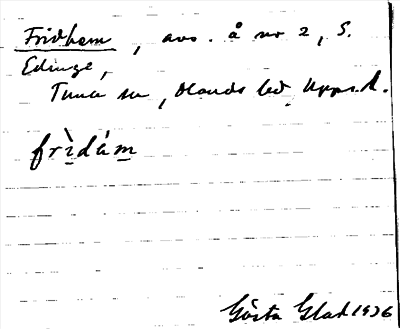 Fridhem, avs. å nr 2, S.
Edinge,
Tuna sn, Olands hd, Upps. l.
frìdám
Gösta Glad 1936